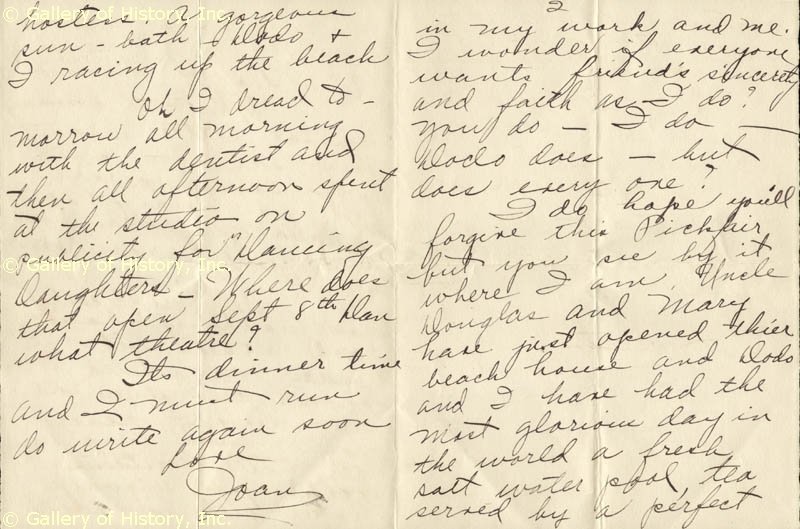 2
in my work and me.
I wonder if everyone
wants friend's sincerety
and faith as I do?
you do - I do -
Dodo does - but
does every one?
I do hope you'll
forgive this Pickfair
but you see by it
where I am, Uncle
Douglas and Mary
have just opened thier
beach house and Dodo
and I have had the
most glorious day in
the world a fresh
salt water pool, tea
served by a perfect
hostess, a gorgeous
sun-bath - Dodo +
I racing up the beach
Oh I dread to-
morrow all morning
with the dentist and
then all afternoon spent
at the studio on
publicity for "Dancing
Daughters - Where does
that open Sept 8th Dan
what theatre?
Its dinner time
and I must run
do write again soon
Love
Joan
© Gallery of History, Inc.
© Gallery of History, Inc.
© Gallery of History, Inc.